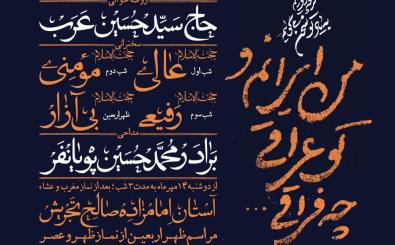 روضه خوانی
حاج سید حسین عرب
سخنرانی
حجت الاسلام عالی
شب اول
حجت الاسلام مومنی
شب دوم
حجت الاسلام رفیعی
شب سوم
حجت الاسلام بی آزار
ظهر اربعین
مداحی
برادر محمد حسین پویانفر
از دوشنبه ۱۳ مهرماه به مدت ۳ شب؛ بعد از نماز مغرب و عشاء
آستان امامزاده صالح تجریش
مراسم ظهر اربعین از نماز ظهر و عصر
من ایرانم و
تو عراقی
چه فراقی ...